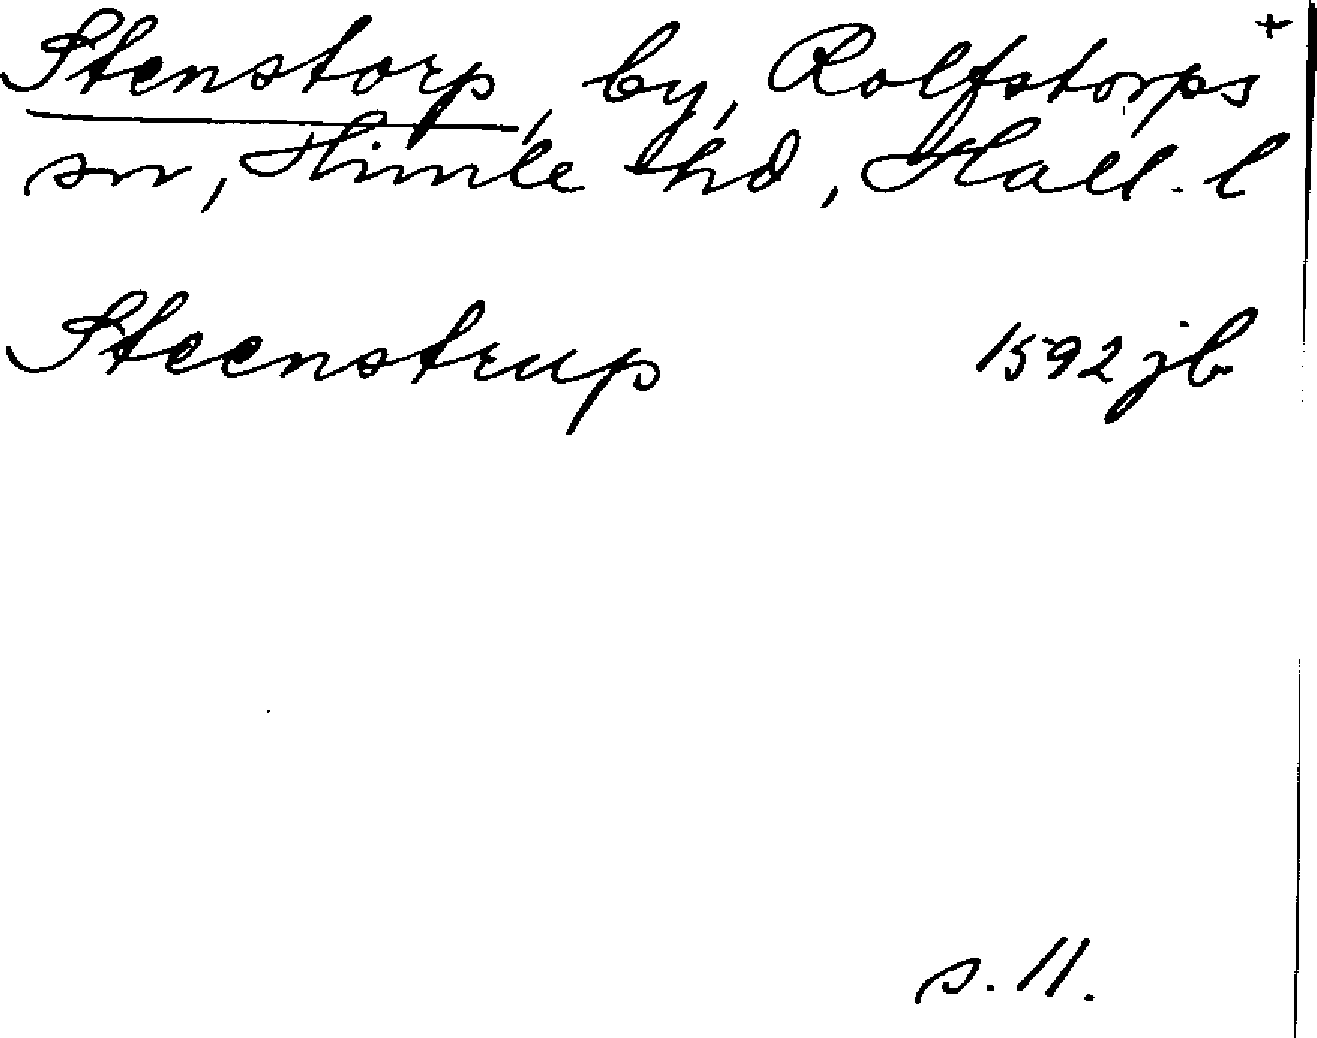 Stenstorp, by, Rolfstorps +
sn, Himle hd, Hall. l
Steenstrup 1592 jb
s. 11.